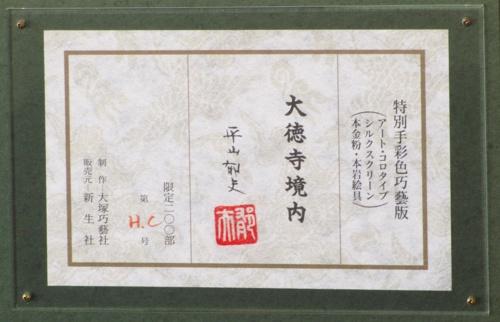 特別手彩色巧藝版
(アート・コロタイプ
シルクスクリーン
本金粉・本岩絵具)
大徳寺境内
平山郁夫
限定二〇〇部
第 H.C 号
制作 大塚巧藝社
販売元 新生社